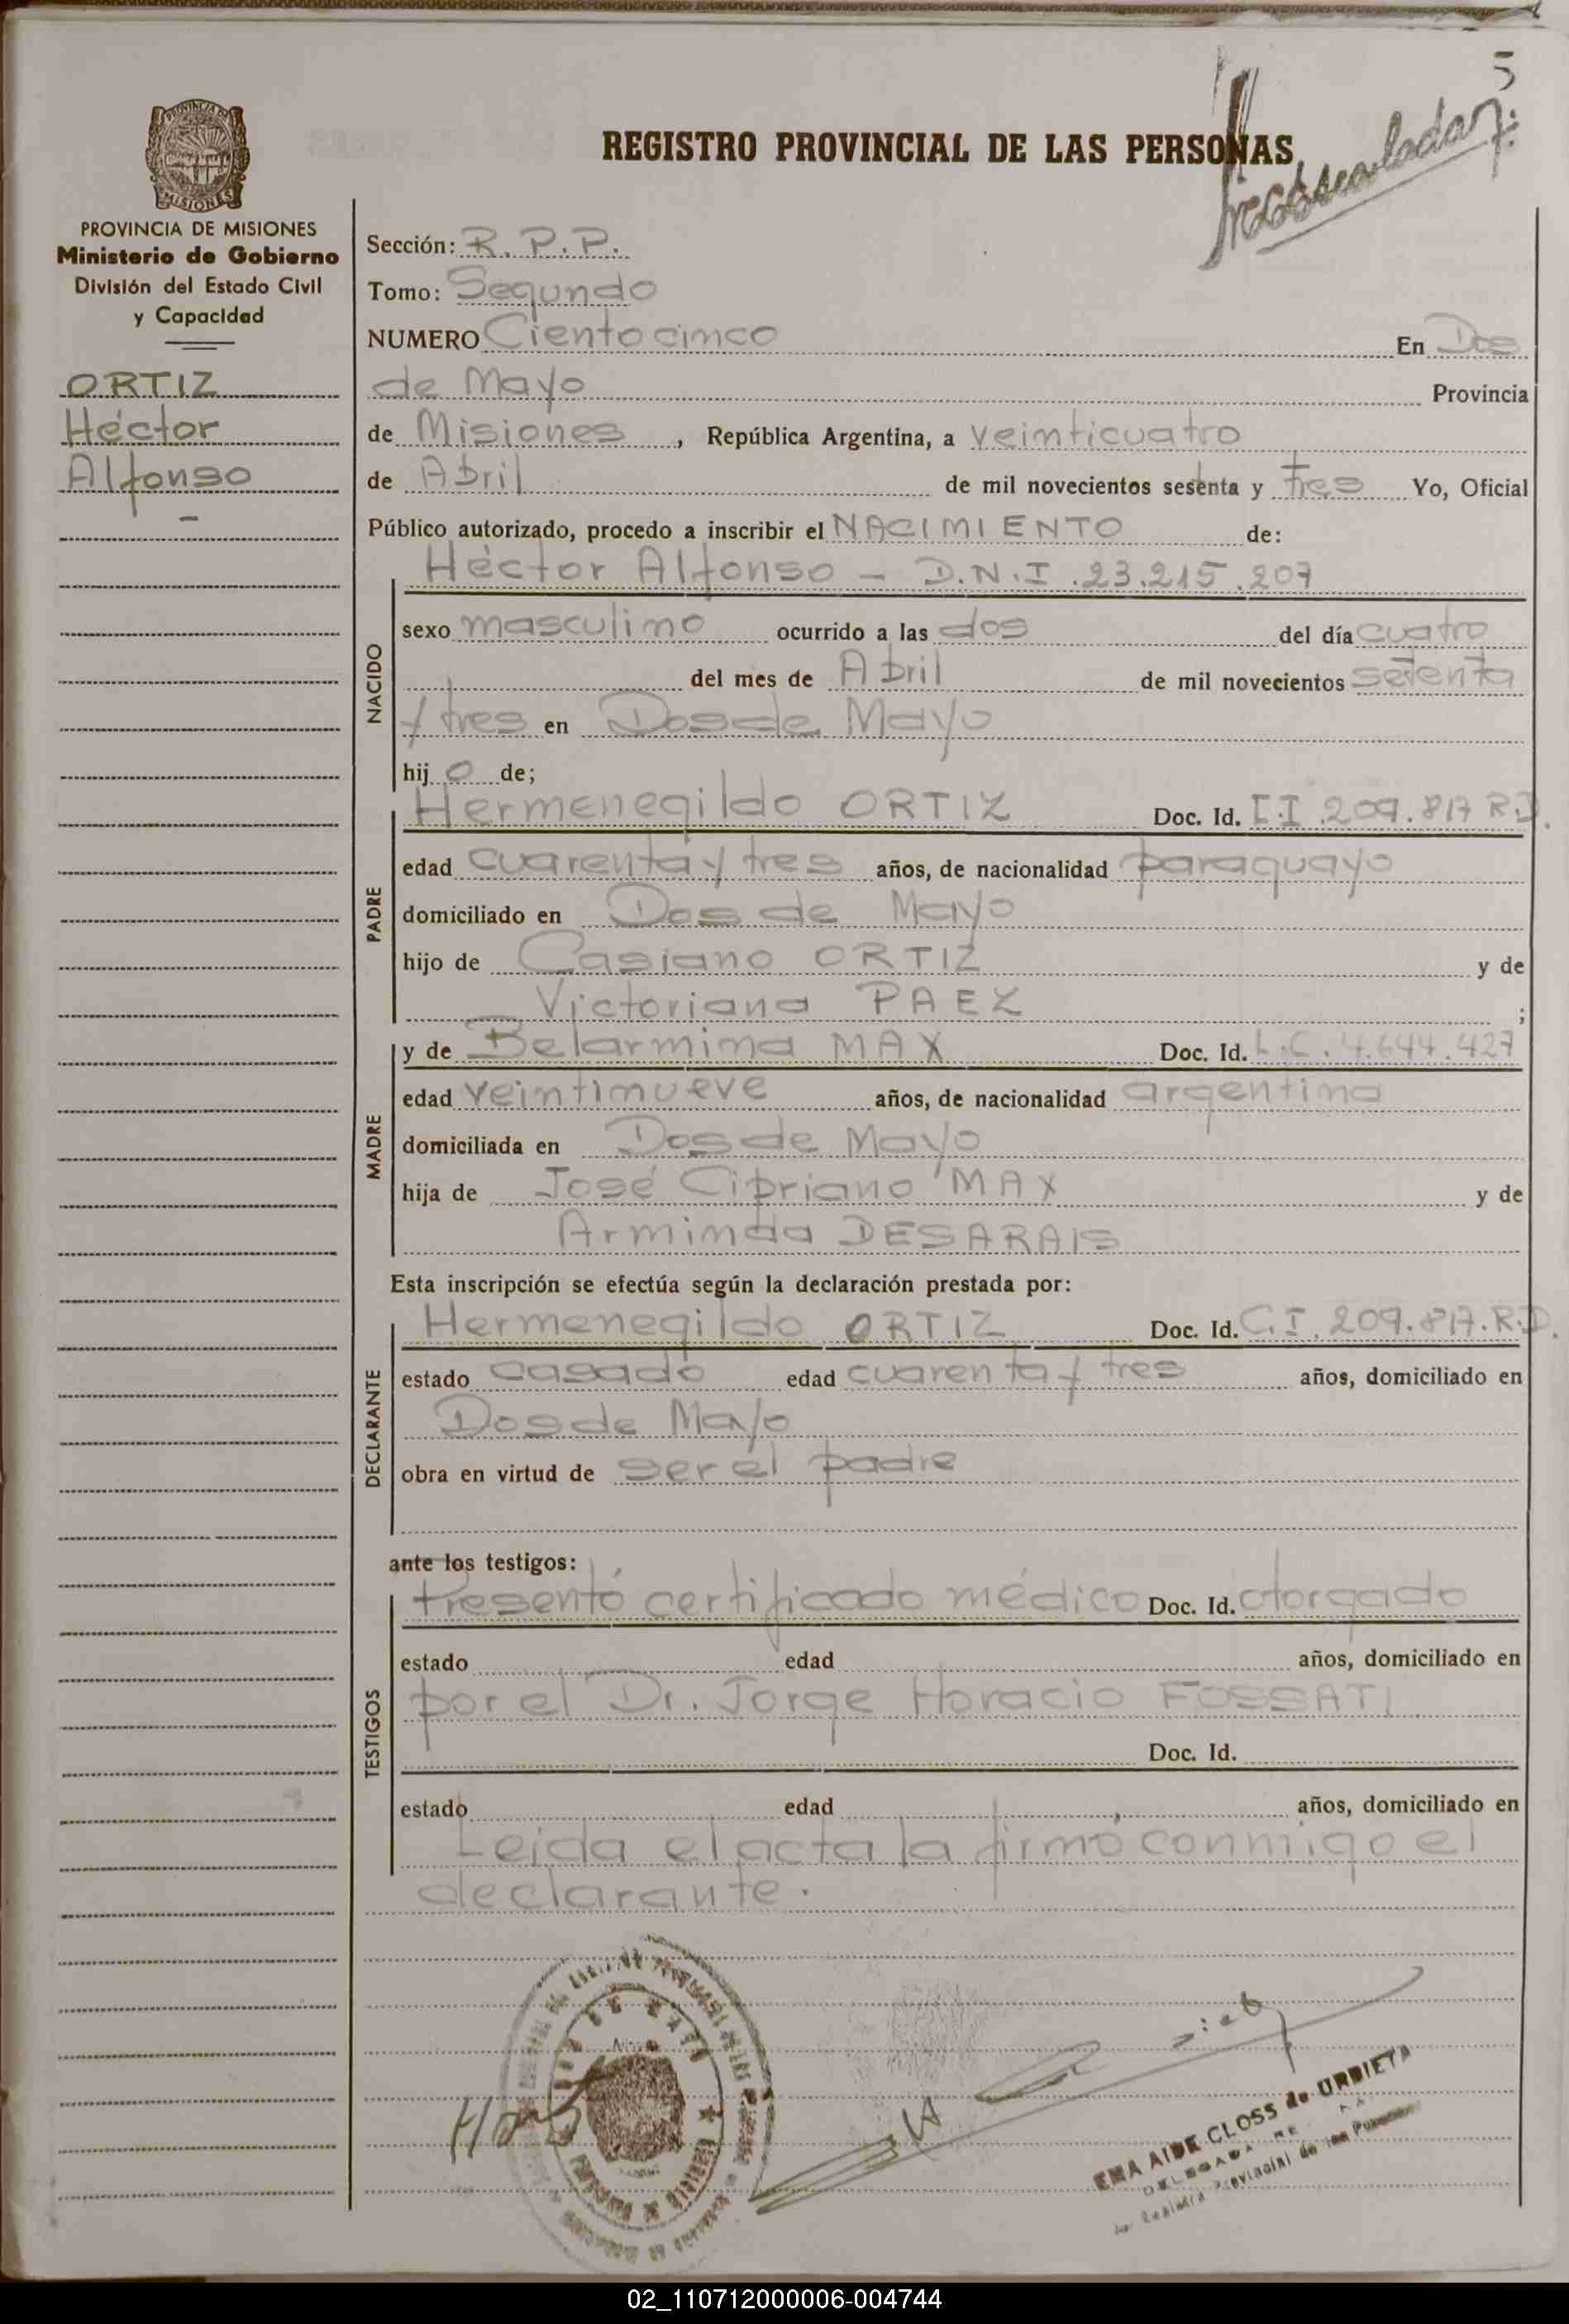 5
REGISTRO PROVINCIAL DE LAS PERSONAS
PROVINCIA DE MISIONES
Ministerio de Gobierno
División del Estado Civil
y Capacidad
ORTIZ
Héctor
Alfonso
Sección: R.P.P.
Tomo: Segundo
NUMERO Ciento cinco En Dos
de Mayo Provincia
de Misiones, República Argentina, a veinticuatro
de Abril de mil novecientos sesenta y tres Yo, Oficial
Público autorizado, procedo a inscribir el NACIMIENTO de:
Héctor Alfonso - D.N.I. 23.215.207
NACIDO
sexo masculino ocurrido a las dos del día cuatro
del mes de Abril de mil novecientos setenta
y tres en Dos de Mayo
hijo de;
PADRE
Hermenegildo ORTIZ Doc. Id. C.I. 209.817 R.D.
edad cuarenta y tres años, de nacionalidad paraguayo
domiciliado en Dos de Mayo
hijo de Casiano ORTIZ y de
Victoriana PAEZ ;
MADRE
y de Belarmina MAX Doc. Id. L.C. 4.644.427
edad veintinueve años, de nacionalidad argentina
domiciliada en Dos de Mayo
hija de José Cipriano MAX y de
Arminda DESARAIS
Esta inscripción se efectúa según la declaración prestada por:
DECLARANTE
Hermenegildo ORTIZ Doc. Id. C.I. 209.817.R.D.
estado casado edad cuarenta y tres años, domiciliado en
Dos de Mayo
obra en virtud de ser el padre
ante los testigos:
TESTIGOS
Presentó certificado médico Doc. Id. otorgado
estado edad años, domiciliado en
por el Dr. Jorge Horacio FOSSATI
Doc. Id.
estado edad años, domiciliado en
Leida el acta la firmó conmigo el
declarante.
EMA AIDE CLOSS de URBIETA
Provincial de las
02_110712000006-004744